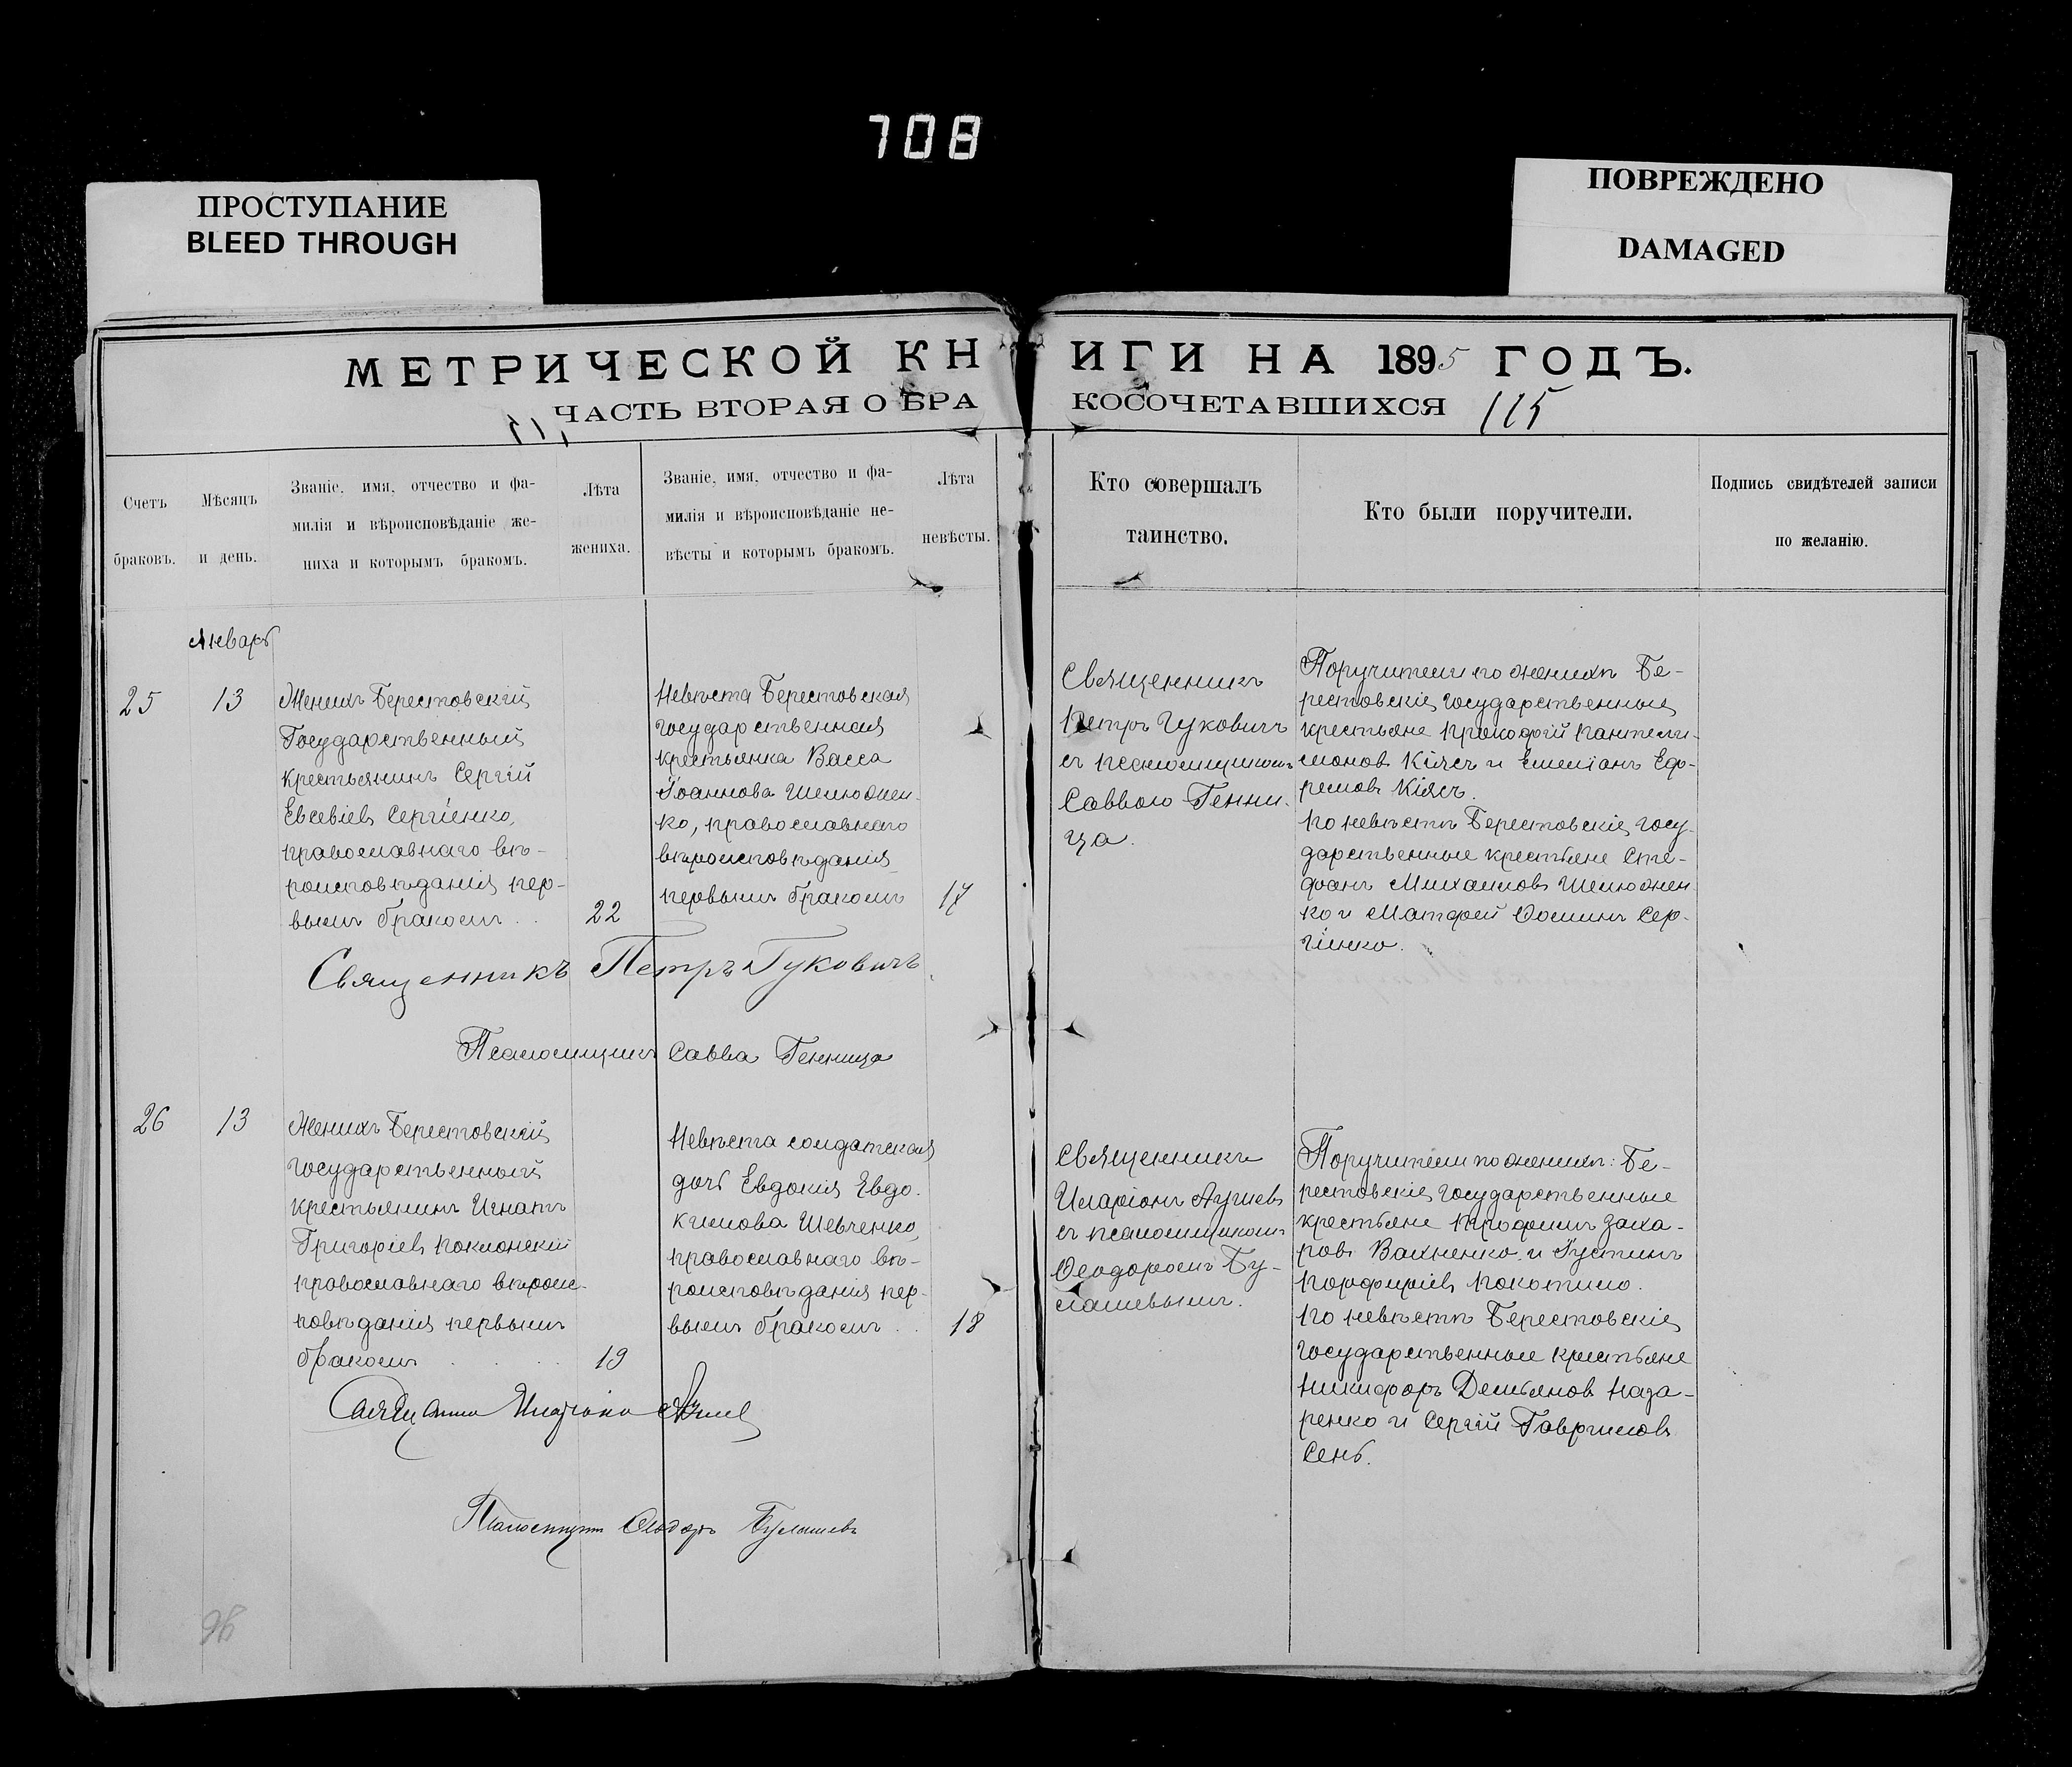 708
ПРОСТУПАНИЕ
BLEED THROUGH
ПОВРЕЖДЕНО
DAMAGED
МЕТРИЧЕСКОЙ КНИГИ НА 1895 ГОДЪ.
ЧАСТЬ ВТОРАЯ О БРАКОСОЧЕТАВШИХСЯ 115
Счетъ
браковъ.
Мѣсяцъ
и день.
Званіе, имя, отчество и фа-
милія и вѣроисповѣданіе же-
ниха и которымъ бракомъ.
Лѣта
жениха.
Званіе, имя, отчество и фа-
милія и вѣроисповѣданіе не-
вѣсты и которымъ бракомъ.
Лѣта
невѣсты.
Кто совершалъ
таинство.
Кто были поручители.
Подпись свидѣтелей записи
по желанію.
Январь
25
13
Женихъ Берестовскій
Государственный
крестьянинъ Сергій
Евсевіевъ Сергіенко,
православнаго вѣ-
роисповѣданія пер-
вымъ бракомъ . .
22
Невѣста Берестовская
государственная
крестьянка Васса
Іоаннова Шелюжен-
ко, православнаго
вѣроисповѣданія
первымъ бракомъ
17
Священникъ
Петръ Гуковичъ
съ псаломщикомъ
Саввою Генни-
ца.
Поручители по женихѣ Бе-
рестовскіе государственные
крестьяне Прокофій Пантели-
монов Кіясъ и Емеліанъ Еф-
ремовъ Кіясъ.
По невѣстѣ Берестовскіе госу-
дарственные крестьяне Сте-
фанъ Михаиловъ Шелюжен-
ко и Матфей Фоминъ Сер-
гіенко.
Священникъ Петръ Гуковичъ
Псаломщикъ Савва Генница
26
13
Женихъ Берестовскій
государственный
крестьянинъ Игнатъ
Григоріевъ Поклонскій
православнаго вѣроис-
повѣданія первымъ
бракомъ . . . .
19
Невѣста солдатская
дочь Евдокія Евдо-
кимова Шевченко,
православнаго вѣ-
роисповѣданія пер-
вымъ бракомъ . .
18
Священникъ
Иларіонъ
съ псаломщикомъ
Ѳеодоромъ Бу-
лашевымъ.
Поручители по женихѣ: Бе-
рестовскіе государственные
крестьяне Трофимъ Заха-
ровъ Вахненко и Іустинъ
Порфиріевъ Покотило.
По невѣстѣ Берестовскіе
государственные крестьяне
Никифоръ Демьяновъ Наза-
ренко и Сергій Гавриловъ
Сень.
Псаломщикъ Ѳеодоръ Булашевъ